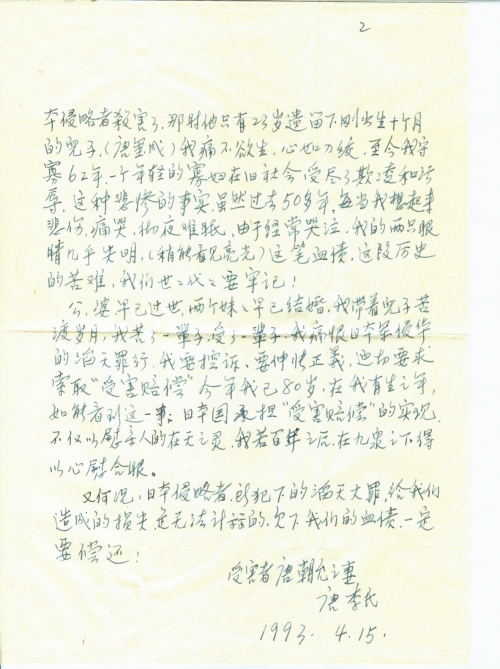 2
本侵略者殺害了,那时他只有23岁遗留下刚出生十个月
的兒子,(唐玺成)我痛不欲生,心如刀绞,至今我守
寡62年,一个年轻的寡妇在旧社会受尽了欺凌和污
辱,这种悲惨的事实,虽然过去50多年,每当我想起来
悲伤,痛哭,彻夜难眠,由于经常哭泣,我的两只眼
睛几乎失明,(稍能看见亮光)这笔血债,这段历史
的苦难,我们世々代々要牢记!
公,婆早已过世,两个妹々早已结婚,我带着兒子苦
渡岁月,我苦了一輩子,受了一輩子,我痛恨日本军侵华
的滔天大罪行,我要控诉、要伸张正義,迫切要求
索取"受害赔偿"今年我已80岁,在我有生之年,
如能看到这一事,日本国承担"受害赔偿"的实现,
不仅以慰亲人的在天之灵,我若百年之后,在九泉之下得
以心慰合眼。
又何况,日本侵略者,所犯下的滔天大罪,给我们
造成的损失是无法计算的,欠下我们的血债,一定
要偿还!
受害者唐朝允之妻
唐李氏
1993. 4.15.